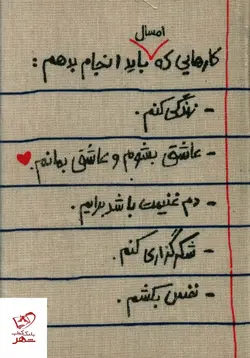 امسال
کارهایی که باید انجام بدهم :
- زندگی کنم.
- عاشق بشوم و عاشق بمانم.
- دم غنیمت باشد برایم.
- شکرگزاری کنم.
- نفس بکشم.
بانک کتاب
سپهر